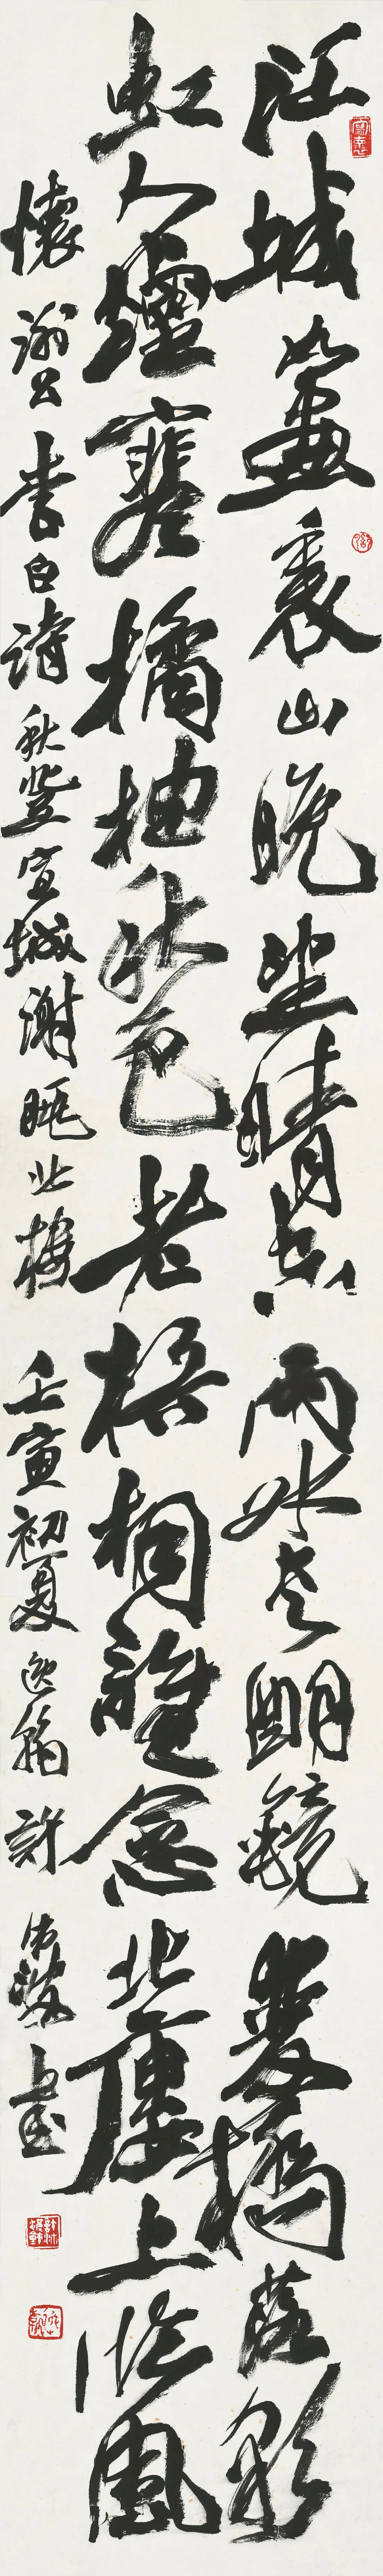 江城如畫裏山晚望晴空兩水夾明鏡雙橋落彩
虹人煙寒橘柚秋色老梧桐誰念北樓上臨風
懷謝公李白詩秋登宣城謝朓北樓壬寅初夏逸翰許書